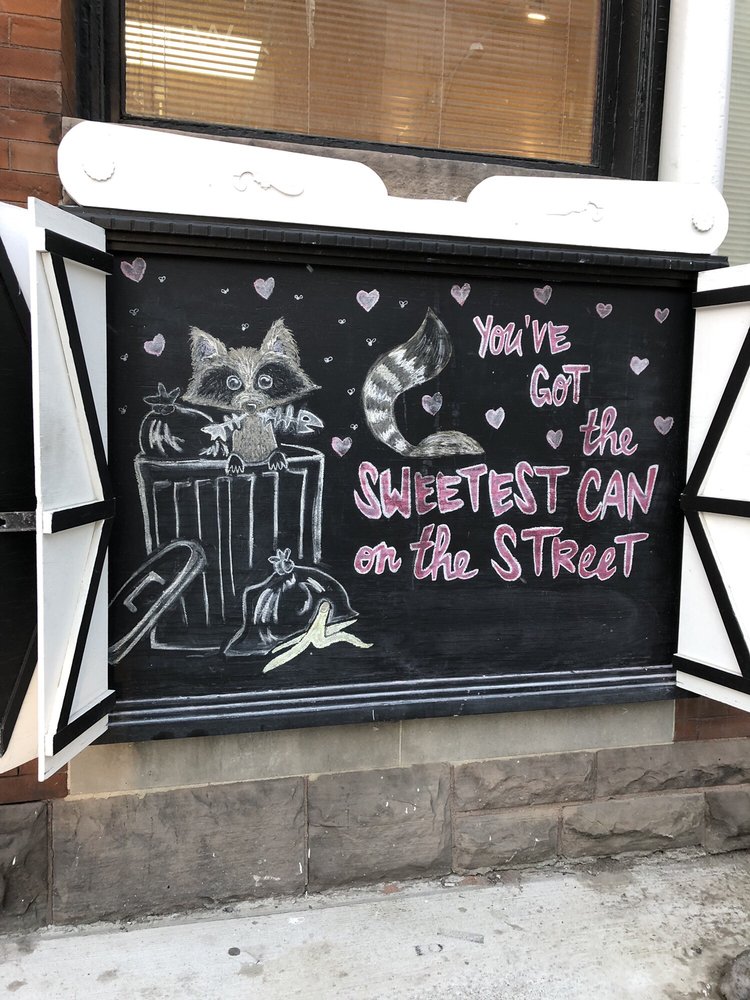 You've
Got
the
SWEETEST CAN
on the STReeT